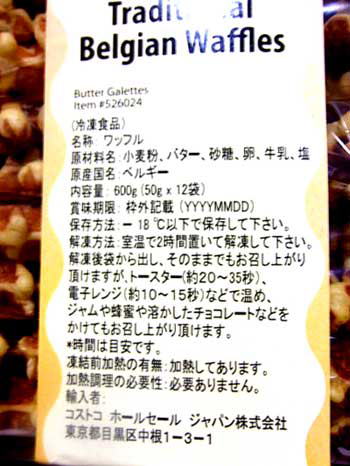 Traditional
Belgian Waffles
Butter Galettes
Item #526024
(冷凍食品)
名称 ワッフル
原材料名:小麦粉、バター、砂糖、卵、牛乳、塩
原産国名:ベルギー
内容量: 600g (50g x 12袋)
賞味期限: 枠外記載 (YYYYMMDD)
保存方法:− 18 ℃以下で保存して下さい。
解凍方法:室温で2時間置いて解凍して下さい。
解凍後袋から出し、そのままでもお召し上がり
頂けますが、トースター(約20~35秒)、
電子レンジ(約10~15秒)などで温め、
ジャムや蜂蜜や溶かしたチョコレートなどを
かけてもお召し上がり頂けます。
*時間は目安です。
凍結前加熱の有無:加熱してあります。
加熱調理の必要性:必要ありません。
輸入者:
コストコ ホールセール ジャパン株式会社
東京都目黒区中根1-3-1